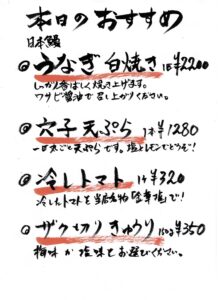 本日のおすすめ
日本鰻
うなぎ白焼き 1本 ¥2200
しっかり香ばしく焼き上げます。
ワサビ醤油で召し上がください。
穴子天ぷら 1本 ¥1280
一本丸ごと天ぷらです。塩とレモンでどうぞ!
冷しトマト 1ケ ¥320
冷したトマトを当店名物 で!
ザク切りきゅうり 150g ¥350
梅味か塩味をお選びください。